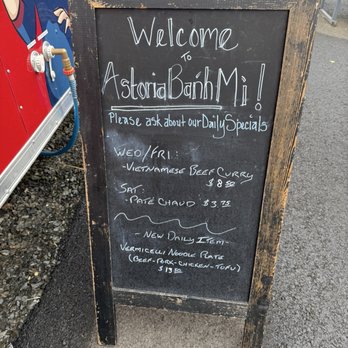 Welcome
TO
Astoria Bánh Mi!
Please ask about our Daily Specials
WED/FRI:
-VIETNAMESE BEEF CURRY
$8.50
SAT:
-PATÉ CHAUD $3.75
- NEW DAILY ITEM -
VERMICELLI NOODLE PLATE
(BEEF-PORK-CHICKEN-TOFU)